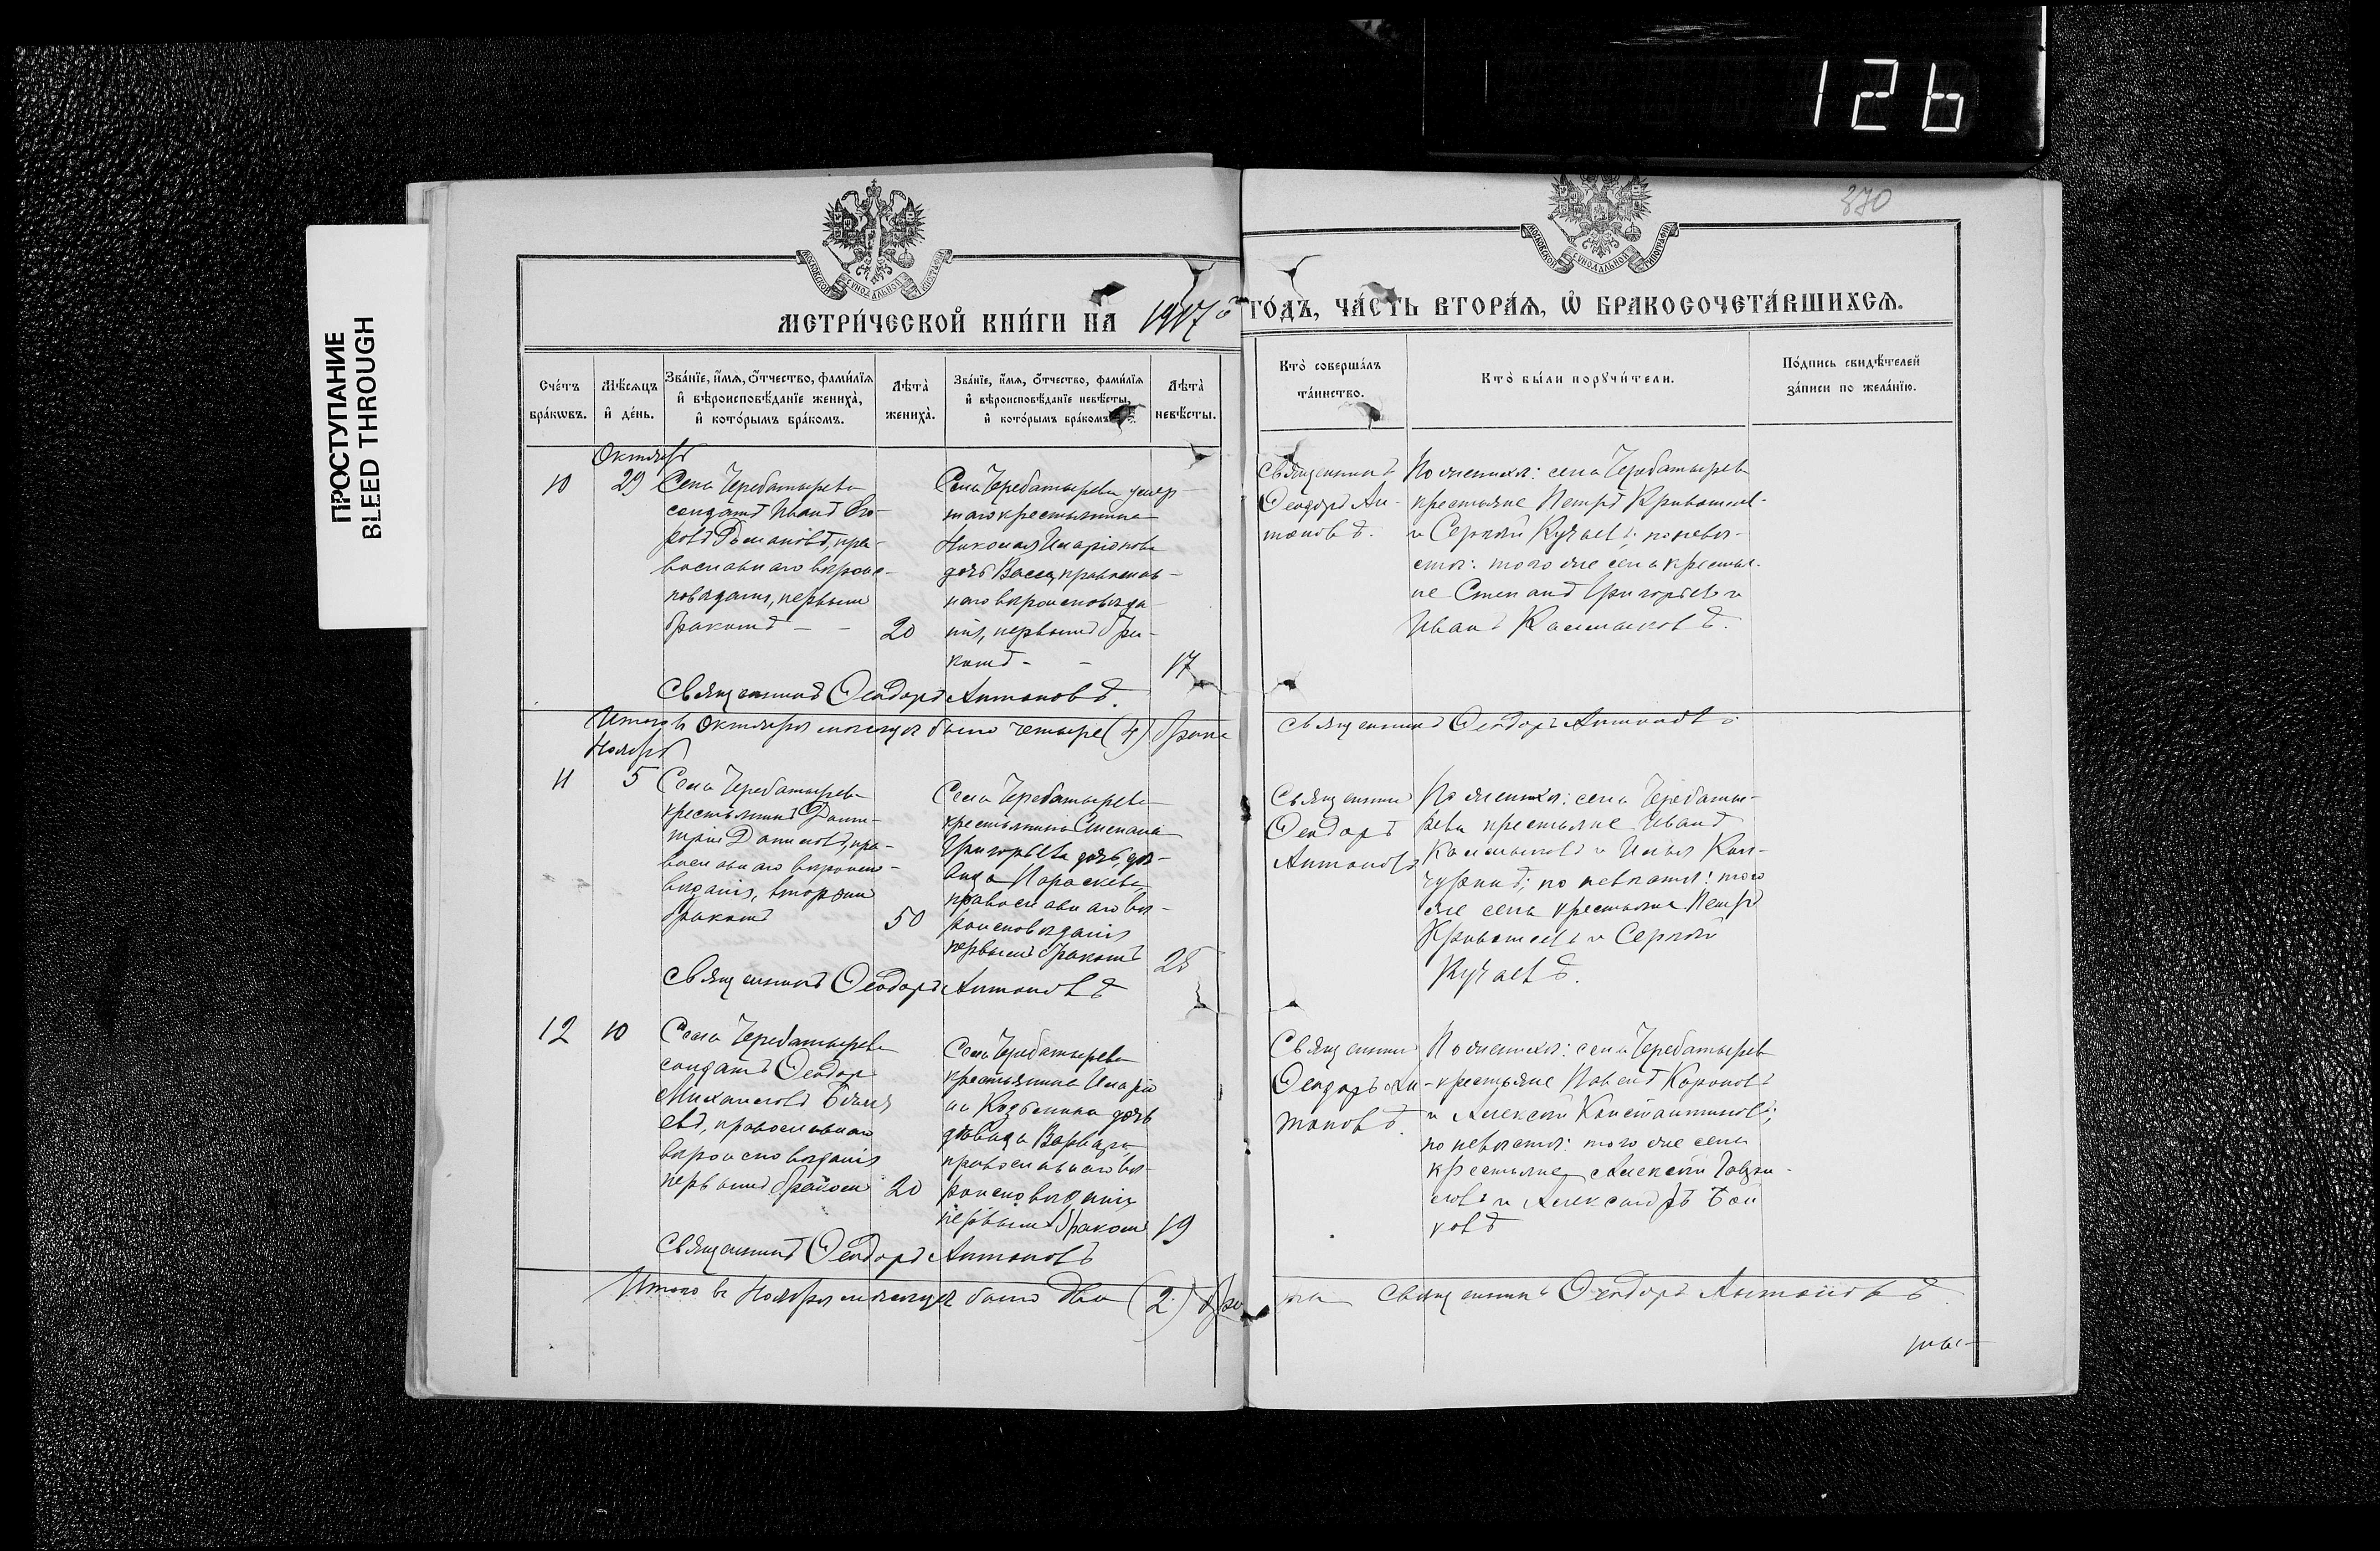 126
ПРОСТУПАНИЕ
BLEED THROUGH
370
МОСКОВСКОЙ СѴНОДАЛЬНОЙ ТИПОГРАФІИ
МОСКОВСКОЙ СѴНОДАЛЬНОЙ ТИПОГРАФІИ
МЕТРИ́ЧЕСКОЙ КНИ́ГИ НА 1917 й ГО́ДЪ, ЧА́СТЬ ВТОРА́Я, Ѡ БРАКОСОЧЕТА́ВШИХСЯ.
Сче́тъ бра́кѡвъ.
Мѣ́сяцъ и де́нь.
Зва́нїе, и́мя, о́тчество, фами́лїя
и вѣроисповѣ́данїе жениха̀,
и кото́рымъ бра́комъ.
Лѣта̀ жениха̀.
Зва́нїе, и́мя, о́тчество, фами́лїя
и вѣроисповѣ́данїе невѣ́сты,
и кото́рымъ бра́комъ
Лѣта̀ невѣ́сты.
Кто̀ соверша́лъ та́инство.
Кто̀ бы́ли порꙋчи́тели.
По́дпись свидѣ́телей
за́писи по жела́нїю.
Октябрь
10
29
Села Черебатырева
солдатъ Иванъ
православнаго вѣроис-
повѣданія, первымъ
бракомъ
20
Села Черебатырева умер-
шаго крестьянина
Николая Иларіонова
дочь Васса, православ-
наго вѣроисповѣда-
нія, первымъ бра-
комъ
17
Священникъ
Ѳеодоръ Ан-
тоновъ.
По женихѣ: села Черебатырева
крестьяне Петръ
и Сергѣй Кучаевъ; по невѣ-
стѣ: того же села крестья-
не Степанъ Григорьевъ и
Иванъ Калмыковъ.
Священникъ Ѳеодоръ Антоновъ.
Итого въ Октябрѣ мѣсяцѣ было четыре (4) брака
Священникъ Ѳеодоръ Антоновъ
Ноябрь
11
5
Села Черебатырева
крестьянинъ
Даниловъ, пра-
вославнаго вѣроиспо-
вѣданія, вторымъ
бракомъ
50
Села Черебатырева
крестьянина Степана
Григорьева дочь, дѣ-
вица Параскева,
православнаго вѣ-
роисповѣданія
первымъ бракомъ
28
Священникъ
Ѳеодоръ
Антоновъ
По женихѣ: села Черебаты-
рева крестьяне Иванъ
Калмыковъ и Илья
по невѣстѣ: того
же села крестьяне Петръ
и Сергѣй
Кучаевъ.
Священникъ Ѳеодоръ Антоновъ
12
10
Села Черебатырева
солдатъ Ѳеодоръ
Михайловъ
православнаго
вѣроисповѣданія
первымъ бракомъ
20
Села Черебатырева
крестьянина Иларіо-
на Козьмина дочь
дѣвица Варвара,
православнаго вѣ-
роисповѣданія
первымъ бракомъ
19
Священникъ
Ѳеодоръ Ан-
тоновъ.
По женихѣ: села Черебатырева
крестьяне Павелъ
и Алексѣй Константиновъ;
по невѣстѣ: того же села
крестьяне Алексѣй
и Александръ
Священникъ Ѳеодоръ Антоновъ
Итого въ Ноябрѣ мѣсяцѣ было два (2) бра
ка Священникъ Ѳеодоръ Антоновъ.